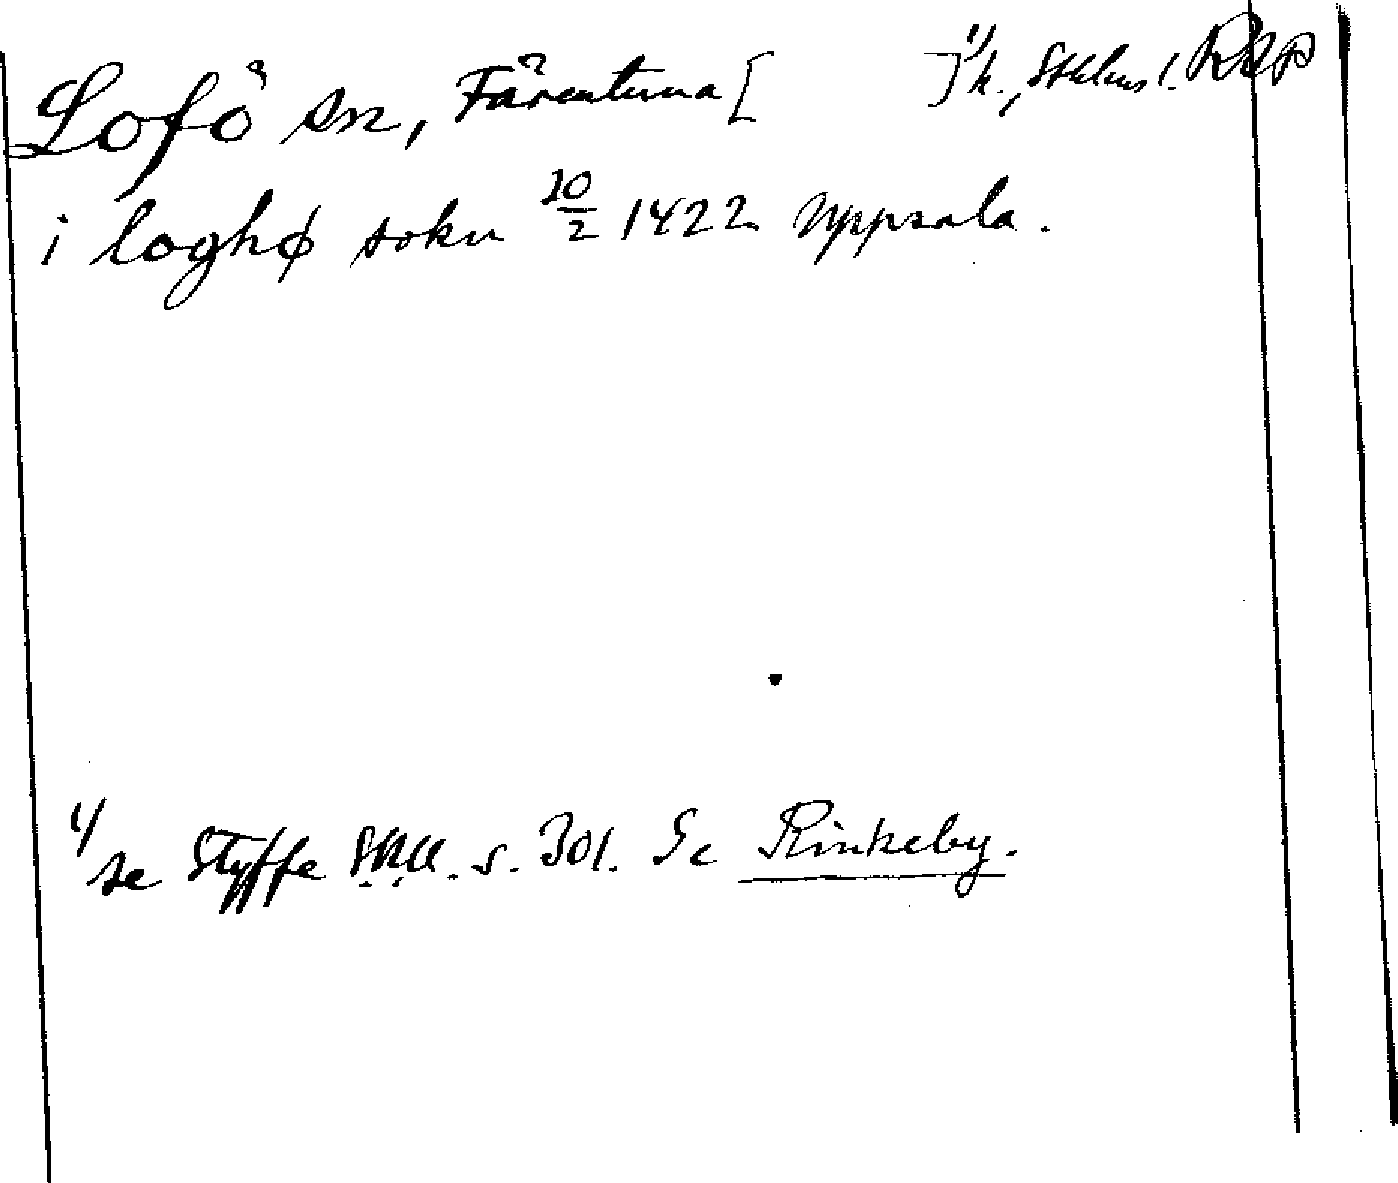 Lofö sn, Färentuna [ ] 1/ h., Sthlms l. RAP
i loghø sokn 10/2 1422 Uppsala.
1/ se Styffe SKU. s. 301. Se Rinkeby.